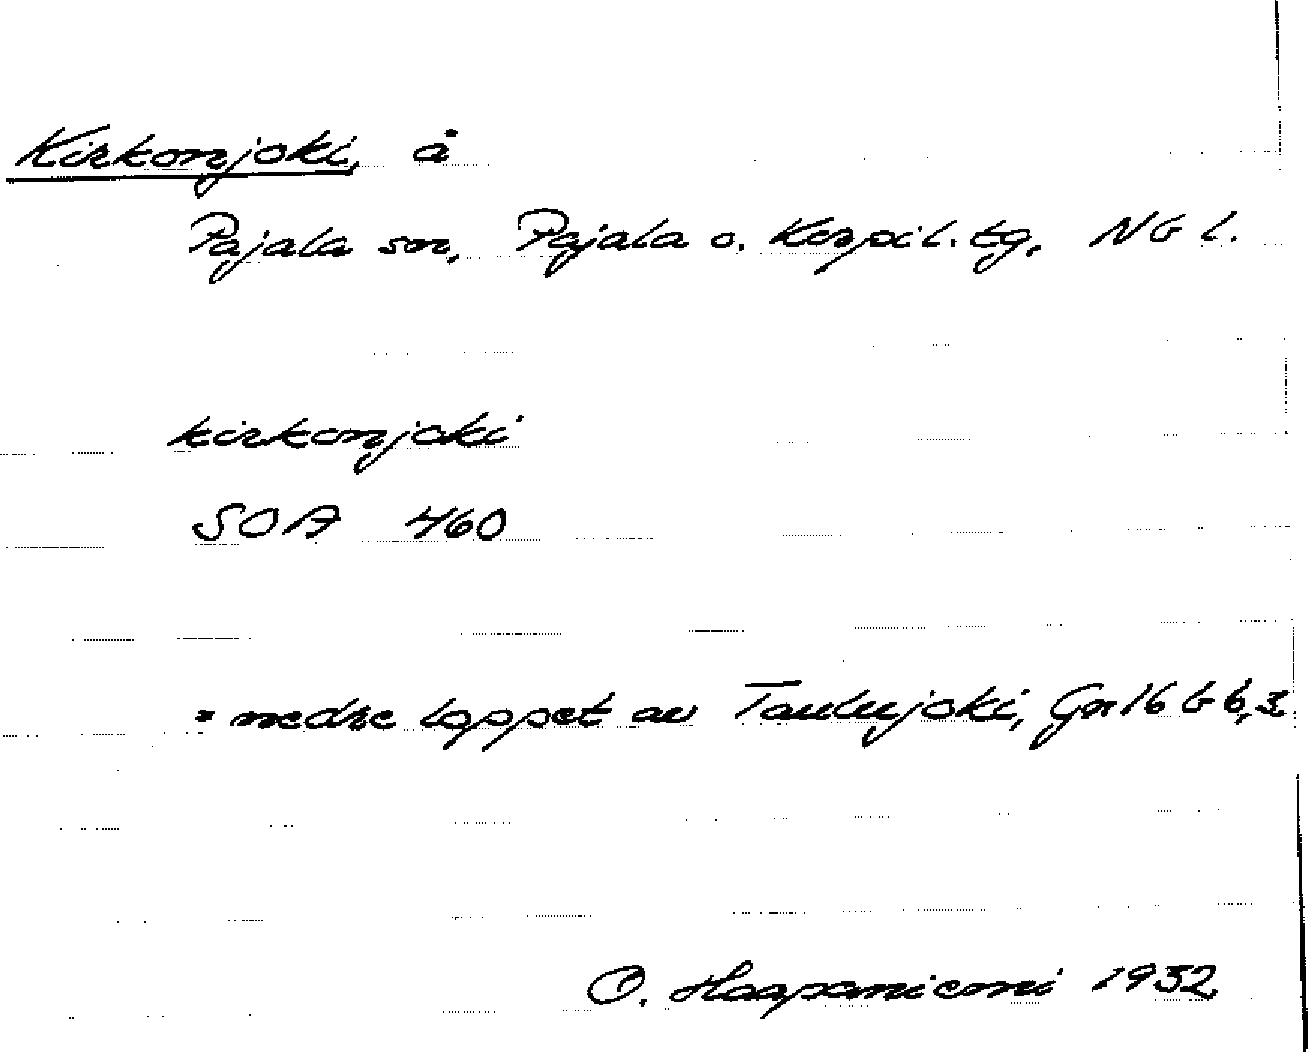 Kirkonjoki, å
Pajala sn, Pajala o. Korpil. tg, NB l.
kirkonjoki
SOA 460
= nedre loppet av Taulujoki, Gn 16 b 6,3.
O. Haapaniemi 1932